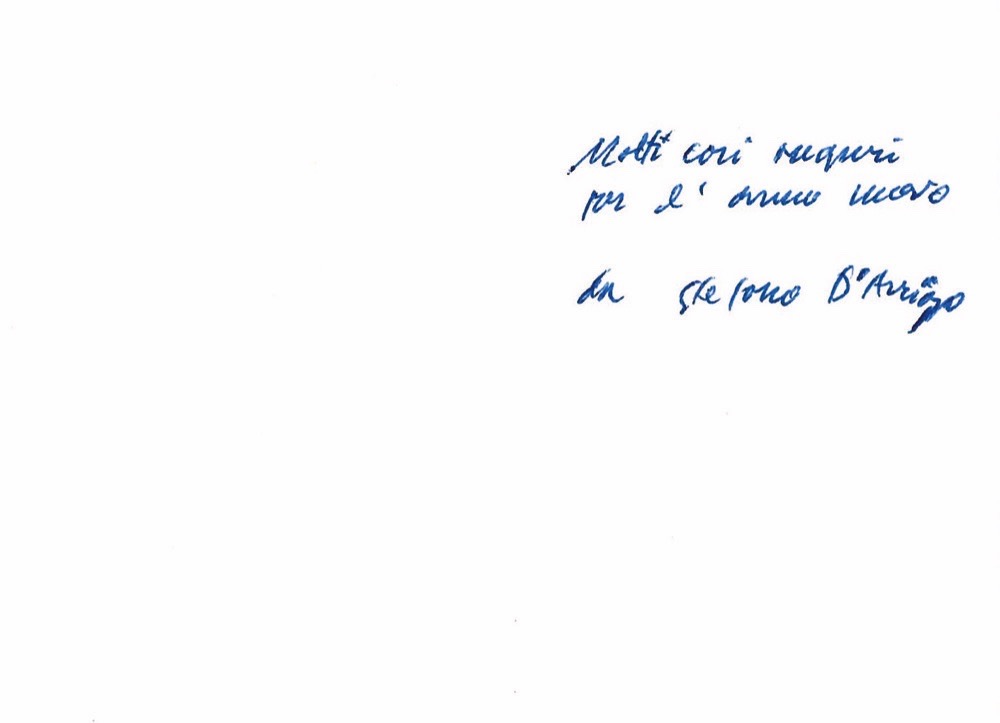 Molti cari auguri
per l' anno nuovo
da Stefano D'Arrigo